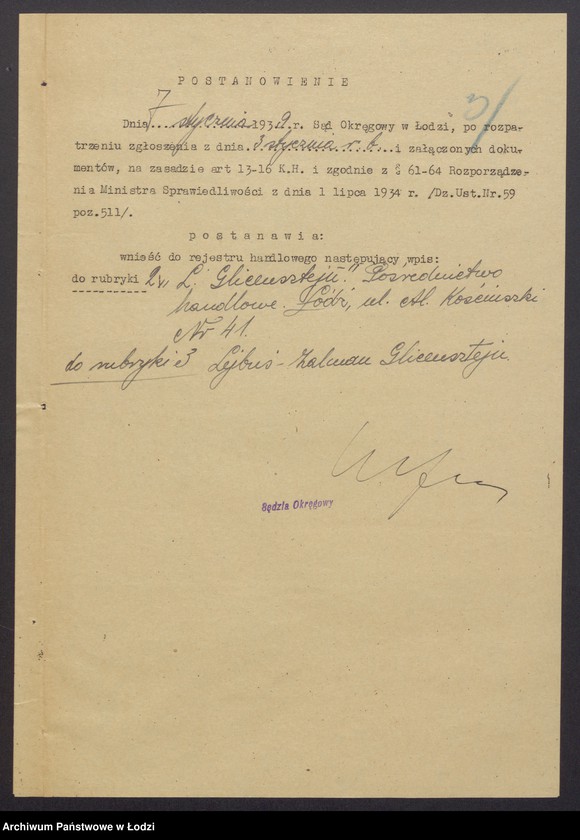 3/
POSTANOWIENIE
Dnia 7 stycznia 1939 r. Sąd Okręgowy w Łodzi, po rozpa-
trzeniu zgłoszenia z dnia 3 stycznia r. b. i załączonych doku-
mentów, na zasadzie art 13-16 K.H. i zgodnie z § 61-64 Rozporządze-
nia Ministra Sprawiedliwości z dnia 1 lipca 1934 r. /Dz.Ust.Nr.59
poz.511/.
postanawia:
wnieść do rejestru handlowego następujący wpis:
do rubryki 2, "L. Glicensztejn". Pośrednictwo
handlowe. Łódź, ul. Al. Kościuszki
Nr 41.
do rubryki 3 Lejbuś-Zalman Glicensztejn.
Sędzia Okręgowy
Archiwum Państwowe w Łodzi